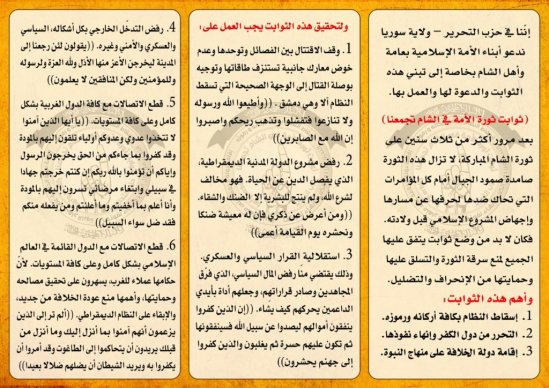 إننا في حزب التحرير – ولاية سوريا
ندعو أبناء الأمة الإسلامية بعامة
وأهل الشام بخاصة إلى تبني هذه
الثوابت والدعوة لها والعمل بها.
(ثوابت ثورة الأمة في الشام تجمعنا)
بعد مرور أكثر من ثلاث سنين على
ثورة الشام المباركة، لا تزال هذه الثورة
صامدة صمود الجبال أمام كل المؤامرات
التي تحاك ضدها لحرفها عن مسارها
وإجهاض المشروع الإسلامي قبل ولادته.
فكان لا بد من وضع ثوابت يتفق عليها
الجميع لمنع سرقة الثورة والتسلق عليها
وحمايتها من الإنحراف والتضليل.
وأهم هذه الثوابت:
1. إسقاط النظام بكافة أركانه ورموزه.
2. التحرر من دول الكفر وإنهاء نفوذها.
3. إقامة دولة الخلافة على منهاج النبوة.
ولتحقيق هذه الثوابت يجب العمل على:
1. وقف الاقتتال بين الفصائل وتوحدها وعدم
خوض معارك جانبية تستنزف طاقاتها وتوجيه
بوصلة القتال إلى الوجهة الصحيحة التي تسقط
النظام ألا وهي دمشق . ((وأطيعوا الله ورسوله
ولا تنازعوا فتفشلوا وتذهب ريحكم واصبروا
إن الله مع الصابرين))
2. رفض مشروع الدولة المدنية الديمقراطية،
الذي يفصل الدين عن الحياة. فهو مخالف
لشرع الله، ولم ينتج للبشرية إلا الضنك والشقاء.
((ومن أعرض عن ذكري فإن له معيشة ضنكا
ونحشره يوم القيامة أعمى))
3. استقلالية القرار السياسي والعسكري.
وذلك يقتضي منا رفض المال السياسي، الذي فرّق
المجاهدين وصادر قراراتهم، وجعلهم أداة بأيدي
الداعمين يحركهم كيف يشاء. ((إن الذين كفروا
ينفقون أموالهم ليصدوا عن سبيل الله فسينفقونها
ثم تكون عليهم حسرة ثم يغلبون والذين كفروا
إلى جهنم يحشرون))
4. رفض التدخّل الخارجي بكل أشكاله، السياسي
والعسكري والأمني وغيره. ((يقولون لئن رجعنا إلى
المدينة ليخرجن الأعز منها الأذل ولله العزة ولرسوله
وللمؤمنين ولكن المنافقين لا يعلمون))
5. قطع الاتصالات مع كافة الدول الغربية بشكل
كامل وعلى كافة المستويات. ((يا أيها الذين آمنوا
لا تتخذوا عدوي وعدوكم أولياء تلقون إليهم بالمودة
وقد كفروا بما جاءكم من الحق يخرجون الرسول
وإياكم أن تؤمنوا بالله ربكم إن كنتم خرجتم جهادا
في سبيلي وابتغاء مرضاتي تسرون إليهم بالمودة
وأنا أعلم بما أخفيتم وما أعلنتم ومن يفعله منكم
فقد ضل سواء السبيل))
6. قطع الاتصالات مع الدول القائمة في العالم
الإسلامي بشكل كامل وعلى كافة المستويات. لأن
حكامها عملاء للغرب، يسهرون على تحقيق مصالحه
وحمايتها، وأهمها منع عودة الخلافة من جديد،
والإبقاء على النظام الديمقراطي. ((ألم تر إلى الذين
يزعمون أنهم آمنوا بما أنزل إليك وما أنزل من
قبلك يريدون أن يتحاكموا إلى الطاغوت وقد أمروا أن
يكفروا به ويريد الشيطان أن يضلهم ضلالا بعيدا))